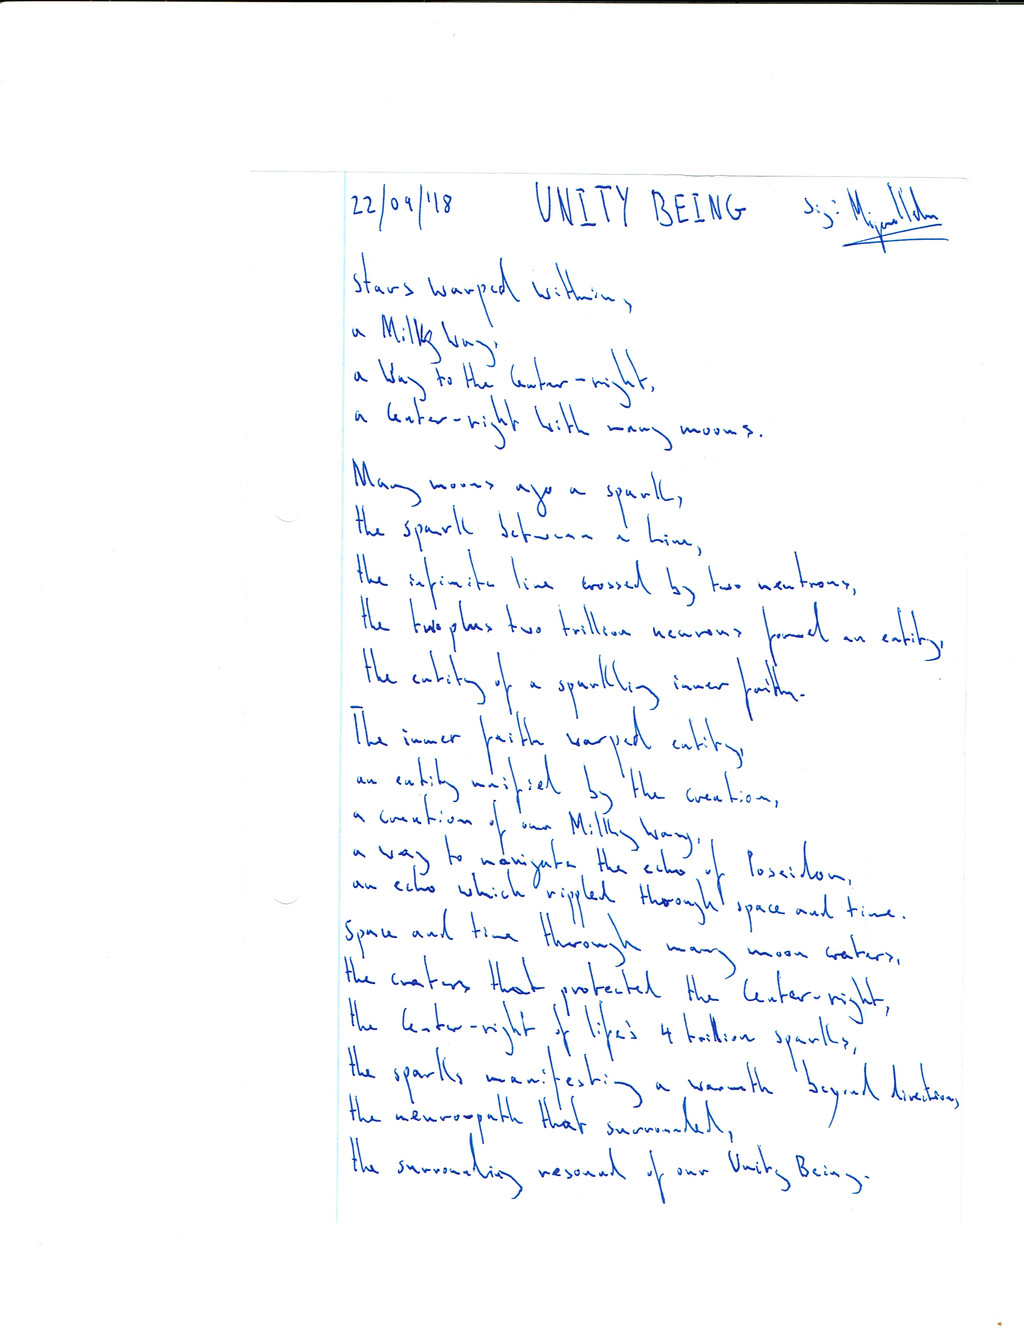 22/09/'18 UNITY BEING Sig:
Stars warped within,
a Milky Way,
a Way to the Center-right,
a Center-right with many moons.
Many moons ago a spark,
the spark between a line,
the infinite line crossed by two neutrons,
the two plus two trillion neurons formed an entity,
the entity of a sparkling inner faith.
The inner faith warped entity,
an entity unified by the creation,
a creation of our Milky Way,
a way to navigate the echo of Poseidon,
an echo which rippled through space and time.
Space and time through many moon craters,
the craters that protected the Center-right,
the Center-right of life's 4 trillion sparks,
the sparks manifesting a warmth beyond direction,
the neuro-path that surrounded,
the surrounding resound of our Unity Being.